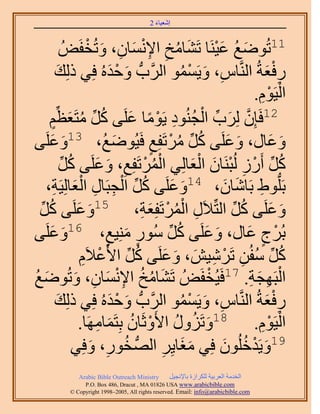 إشعياء 2
11تُوضَعُ عَيْنَا تَشَامُخِ الإِنْسَانِ، وَتُخْفَضُ
رِفْعَةُ النَّاسِ، وَيَسْمُو الرَّبُّ وَحْدَهُ فِي ذلِكَ
الْيَوْمِ.
12فَإِنَّ لِرَبِّ الْجُنُودِ يَوْمًا عَلَى كُلِّ مُتَعَظِّمٍ
وَعَال، وَعَلَى كُلِّ مُرْتَفِعٍ فَيُوضَعُ، 13وَعَلَى
كُلِّ أَرْزِ لُبْنَانَ الْعَالِي الْمُرْتَفِعِ، وَعَلَى كُلِّ
بَلُّوطِ بَاشَانَ، 14وَعَلَى كُلِّ الْجِبَالِ الْعَالِيَةِ،
وَعَلَى كُلِّ التِّلاَلِ الْمُرْتَفِعَةِ، 15وَعَلَى كُلِّ
بُرْجٍ عَال، وَعَلَى كُلِّ سُورٍ مَنِيعٍ، 16وَعَلَى
كُلِّ سُفُنِ تَرْشِيشَ، وَعَلَى كُلِّ الأَعْلاَمِ
الْبَهِجَةِ. 17فَيُخْفَضُ تَشَامُخُ الإِنْسَانِ، وَتُوضَعُ
رِفْعَةُ النَّاسِ، وَيَسْمُو الرَّبُّ وَحْدَهُ فِي ذلِكَ
الْيَوْمِ. 18وَتَزُولُ الأَوْثَانُ بِتَمَامِهَا.
19وَيَدْخُلُونَ فِي مَغَايِرِ الصُّخُورِ، وَفِي
الخدمة العربية للكرازة بالإنجيل Arabic Bible Outreach Ministry
P.O. Box 486, Dracut , MA 01826 USA www.arabicbible.com
© Copyright 1998-2005, All rights reserved. Email: info@arabicbible.com